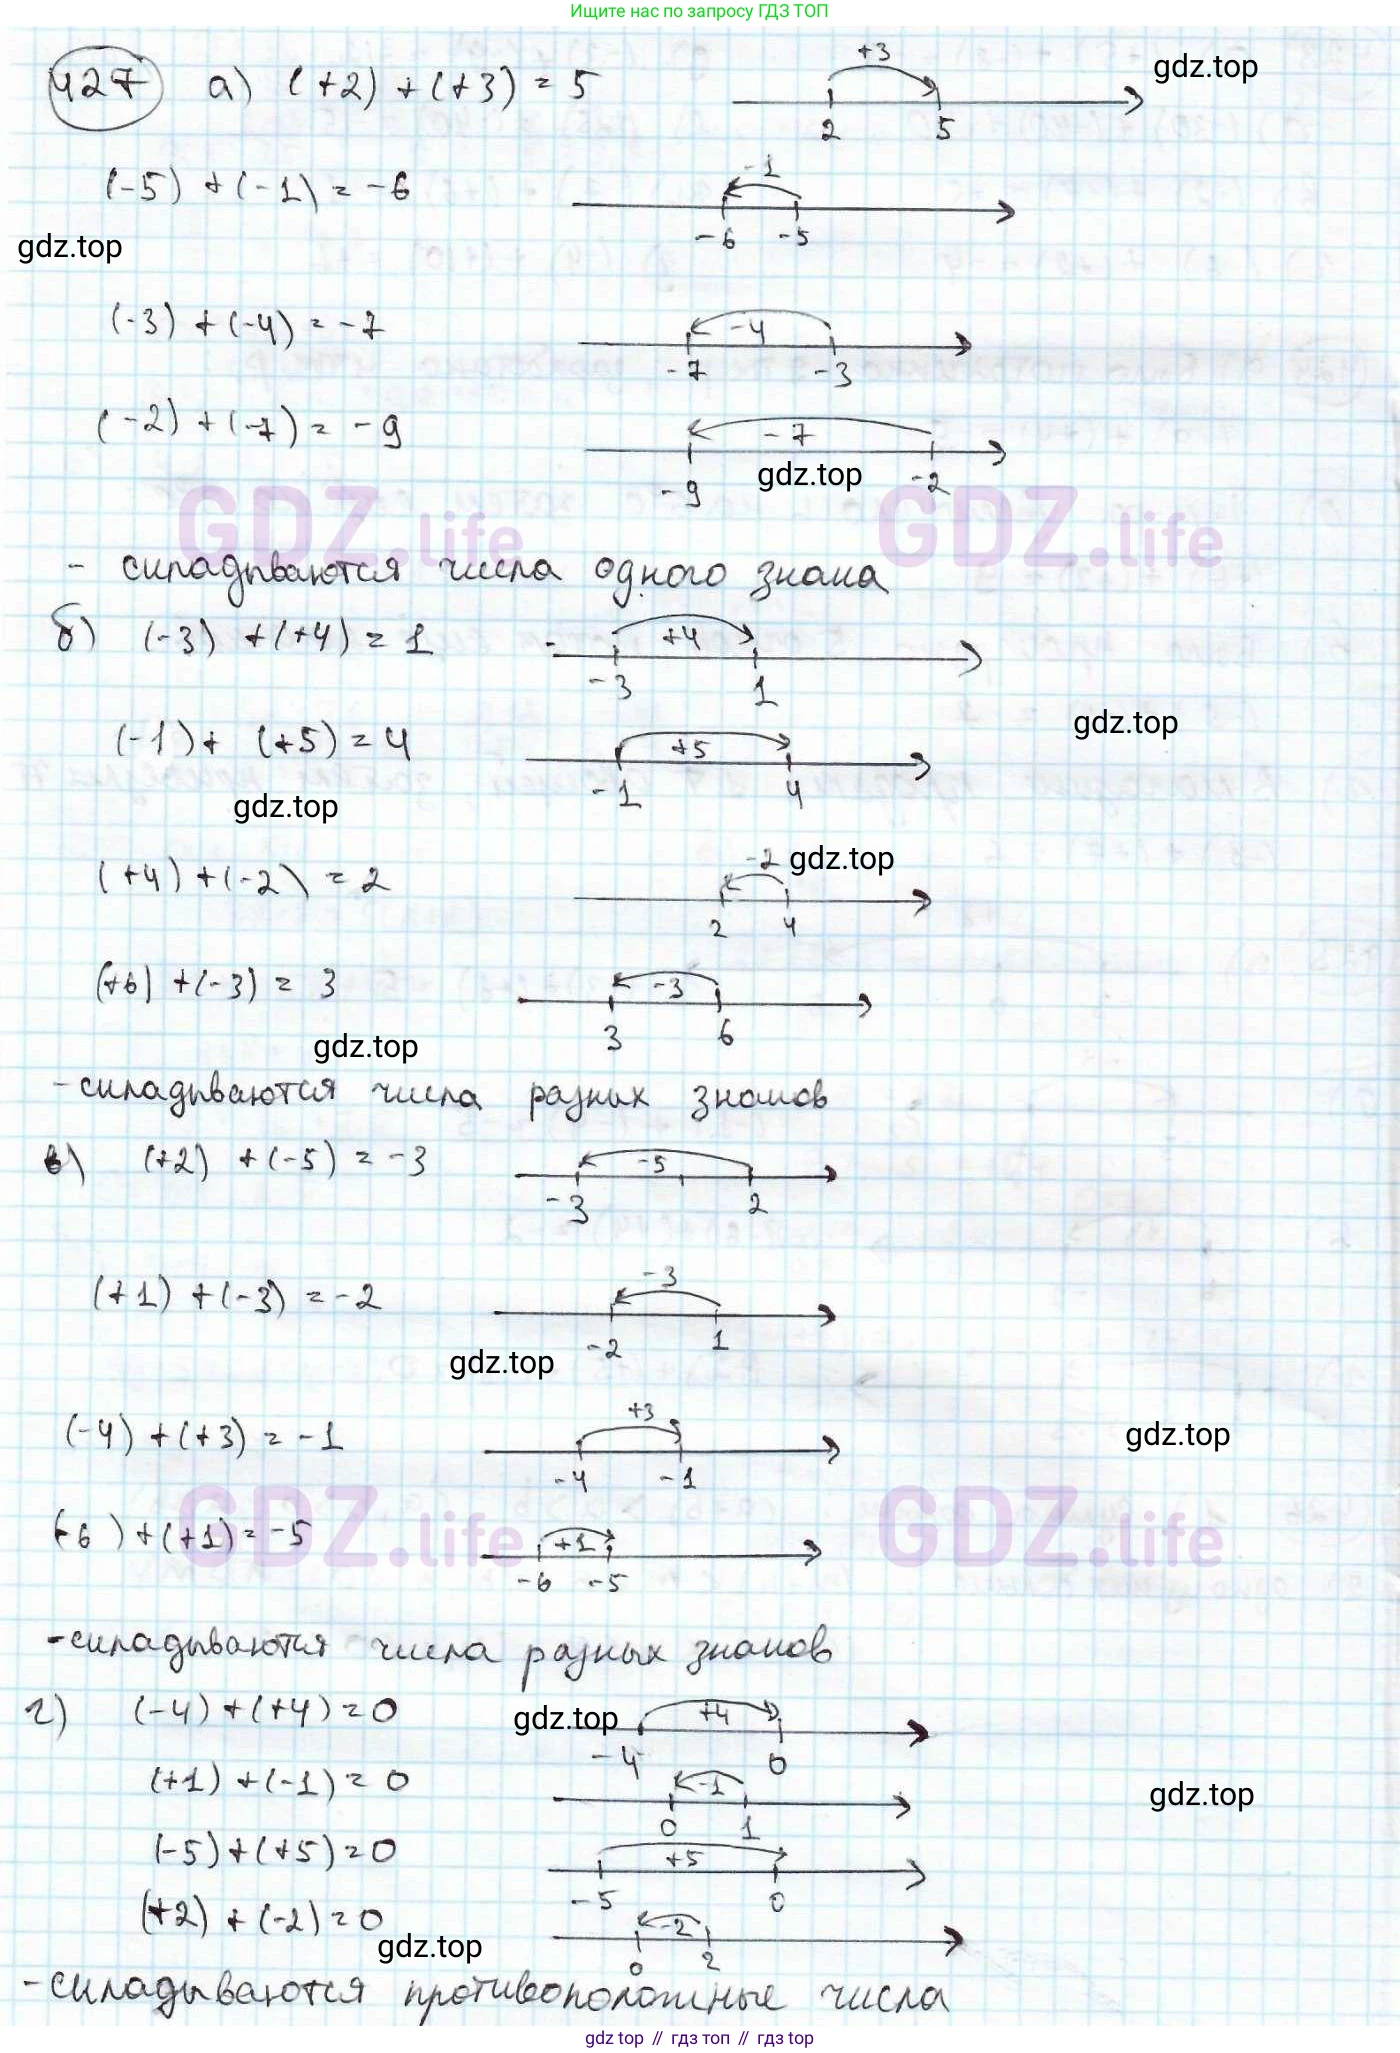 Ищите нас по запросу ГДЗ ТОП
427 а) (+2) + (+3) = 5
+3
gdz.top
2 5
(-5) + (-1) = -6
-1
-6 -5
gdz.top
(-3) + (-4) = -7
-4
-7 -3
(-2) + (-7) = -9
-7
gdz.top
-9 -2
GDZ.life GDZ.life
- складываются числа одного знака
б) (-3) + (+4) = 1
+4
-3 1
gdz.top
(-1) + (+5) = 4
+5
-1 4
gdz.top
(+4) + (-2) = 2
-2 gdz.top
2 4
(+6) + (-3) = 3
-3
3 6
gdz.top
- складываются числа разных знаков
в) (+2) + (-5) = -3
-5
-3 2
(+1) + (-3) = -2
-3
-2 1
gdz.top
(-4) + (+3) = -1
+3
gdz.top
-4 -1
GDZ.life GDZ.life
(-6) + (+1) = -5
+1
-6 -5
- складываются числа разных знаков
г) (-4) + (+4) = 0
gdz.top +4
-4 0
(+1) + (-1) = 0
-1
gdz.top
0 1
(-5) + (+5) = 0
+5
-5 0
(+2) + (-2) = 0
-2
gdz.top
0 2
- складываются противоположные числа
gdz top // гдз топ // gdz top